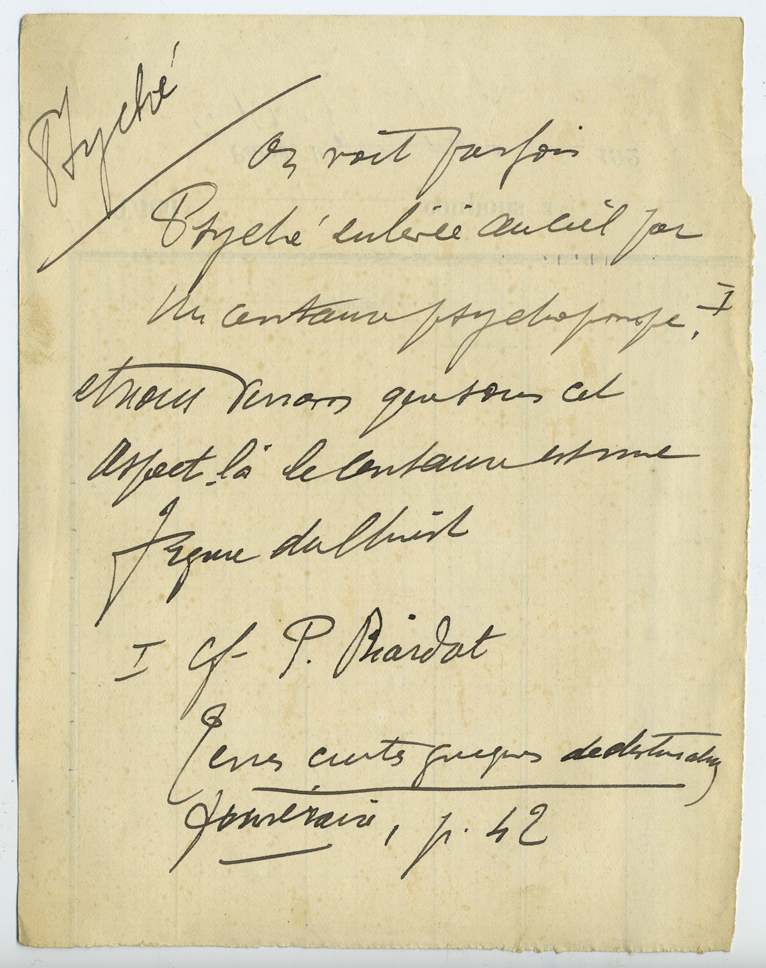 Psyché
On voit parfois
Psyché enlevée au ciel par
un centaure psychopompe, I
et nous verrons que sous cet
aspect-là le centaure est une
figure du Christ
I cf- P. Biardot
Terres cuites grecques de destination
funéraire, p. 42